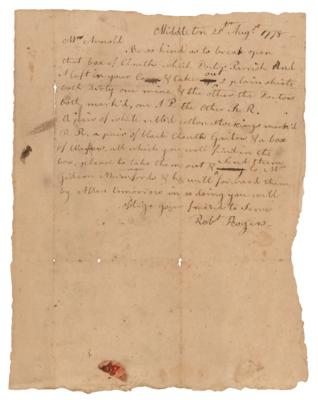 Middleton 20th Augt 1778
Mr Arnold
Be so kind as to break open
that box of Cloaths which Doctr Parrish And
I left in your Care & take out 2 plain shirts
each Dirty one mine & the other the Doctors
both mark'd, one I P the other R R.
A pair of white ribb'd cotton stockings mark'd
R R, a pair of black Cloath Gaiters & a box
of Wafers, all which you will find in the
box, please to take them out & send them to Mr
Gideon Mumford & he will forward them
by Allen tomorrow in so doing you will
oblige your friend to serve
Robt Rogers